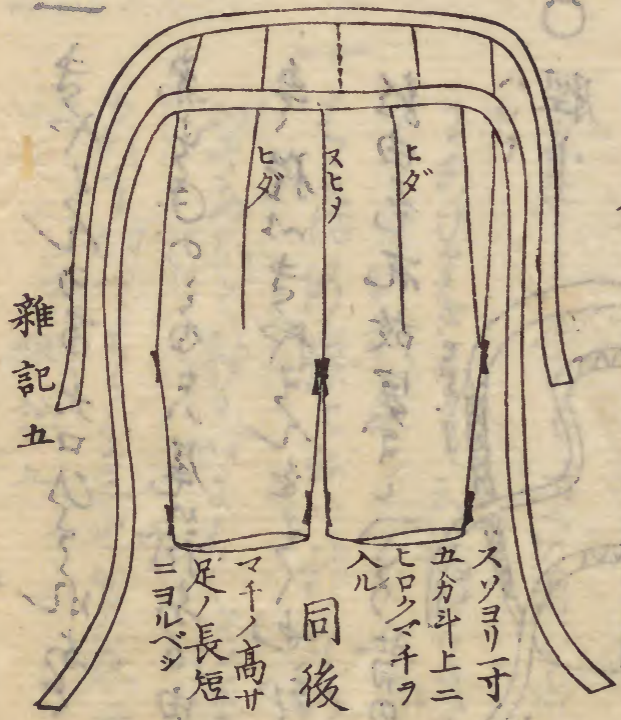 ヒダ
ヌヒメ
ヒダ
スソヨリ一寸
五分斗上ニ
ヒロクマチヲ
入ル
同後
マチノ高サ
足ノ長短
ニヨルベシ
雜記五